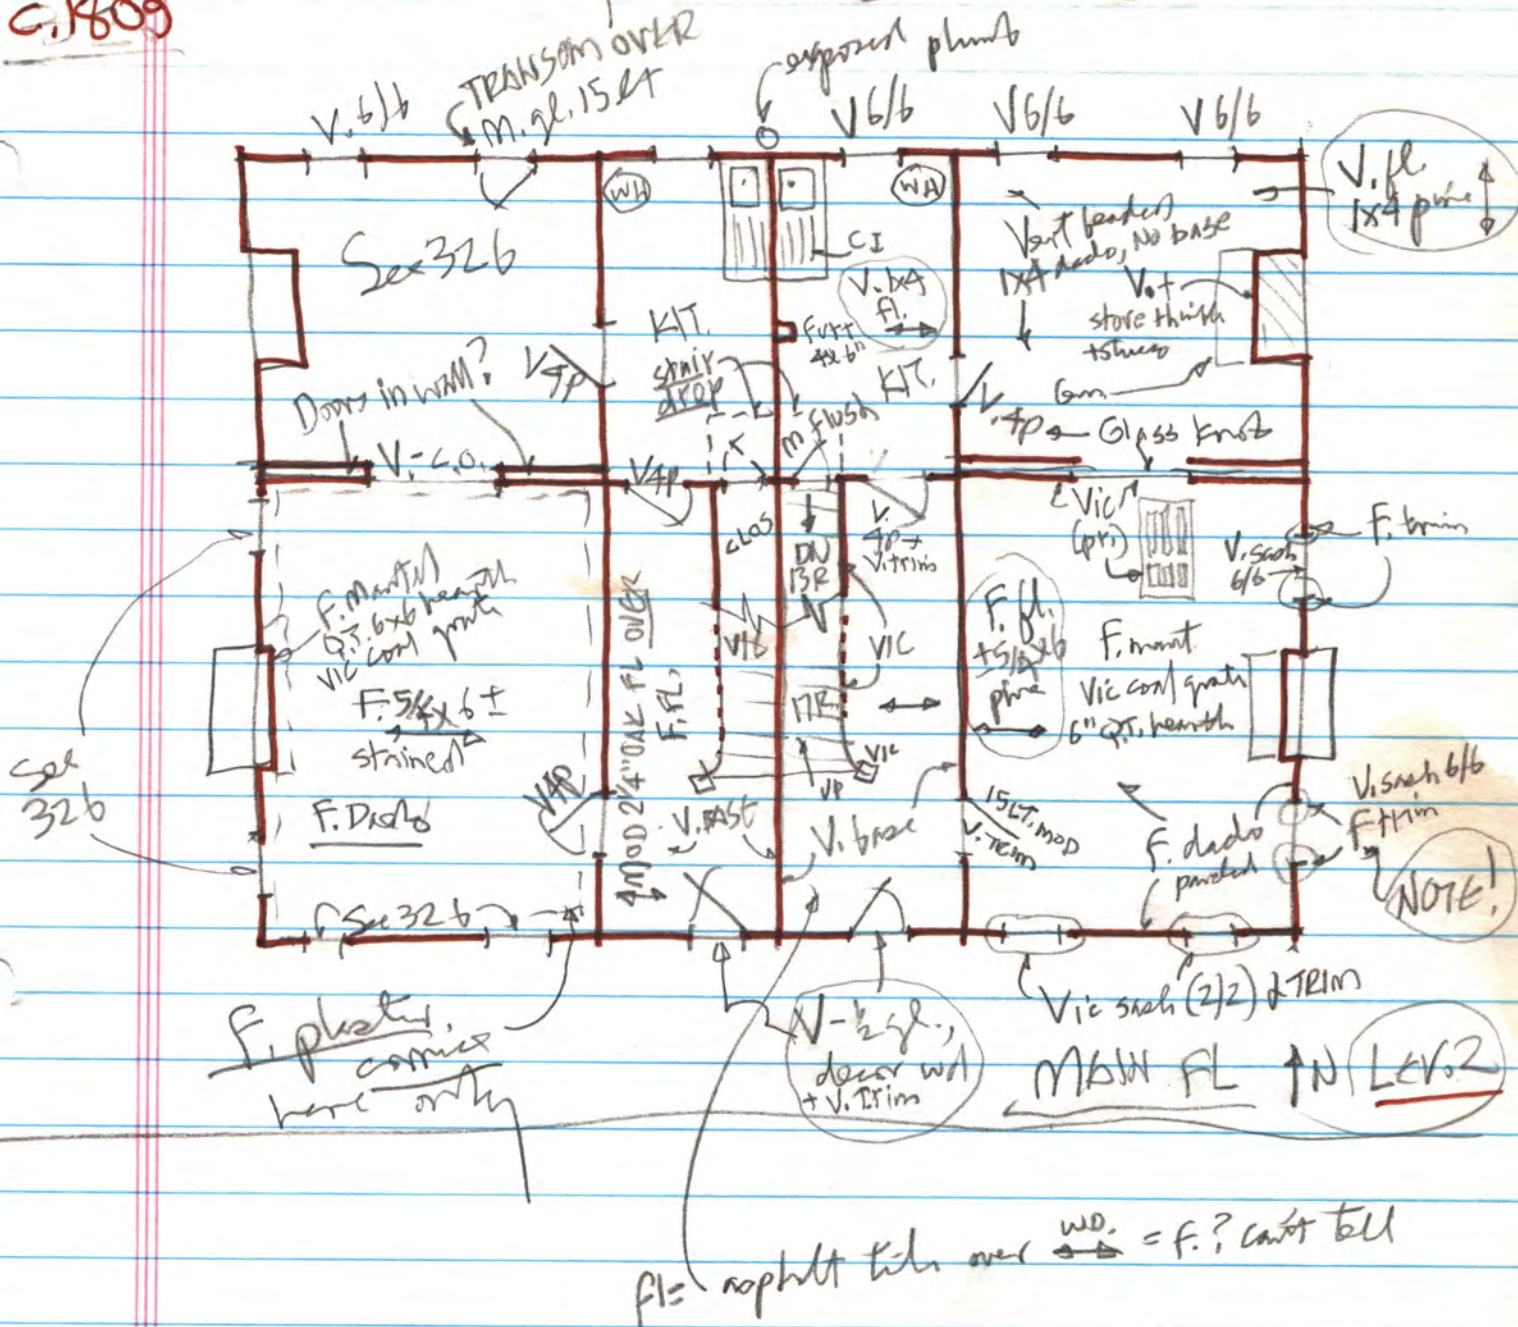 c.1809
TRANSOM OVER
M.gl. 15 LT
exposed plumb
V.6/6
V6/6
V6/6
V6/6
V. fl.
1x4 pine
WH
WH
CI
See 326
Vert beaded
1x4 dado, No base
V. 1x4
fl.
KIT.
stair
drop
Furr
4x6"
KIT.
stove thimble
V4p
Doors in wall?
V.-C.O.
V4p
M flush
V.4p
Glass knob
CLOS
DN
13R
V.
4p +
V.trim
Vic
(pr.)
V.sash
6/6
F. trim
F. Mantel
Q.T. 6x6 hearth
VIC coal grate
F. 5/4 x 6 ±
stained
F. Dado
V4p
MOD 2 1/4" OAK FL OVER
F.FL.
VIC
VIC
17R
UP
VIC
F. fl.
±5/4x6
pine
F. mant.
Vic coal grate
6" Q.T. hearth
See
326
V. base
V. base
15 LT. MOD
V. TRIM
F. dado
painted
V.sash 6/6
F trim
NOTE!
See 326
F. plaster
cornice
here only
V-1/2 gl.,
decor wd
+ V. Trim
Vic sash (2/2) & TRIM
MAIN FL ↑N LEV.2
fl= asphalt tile over WD. = F.? can't tell